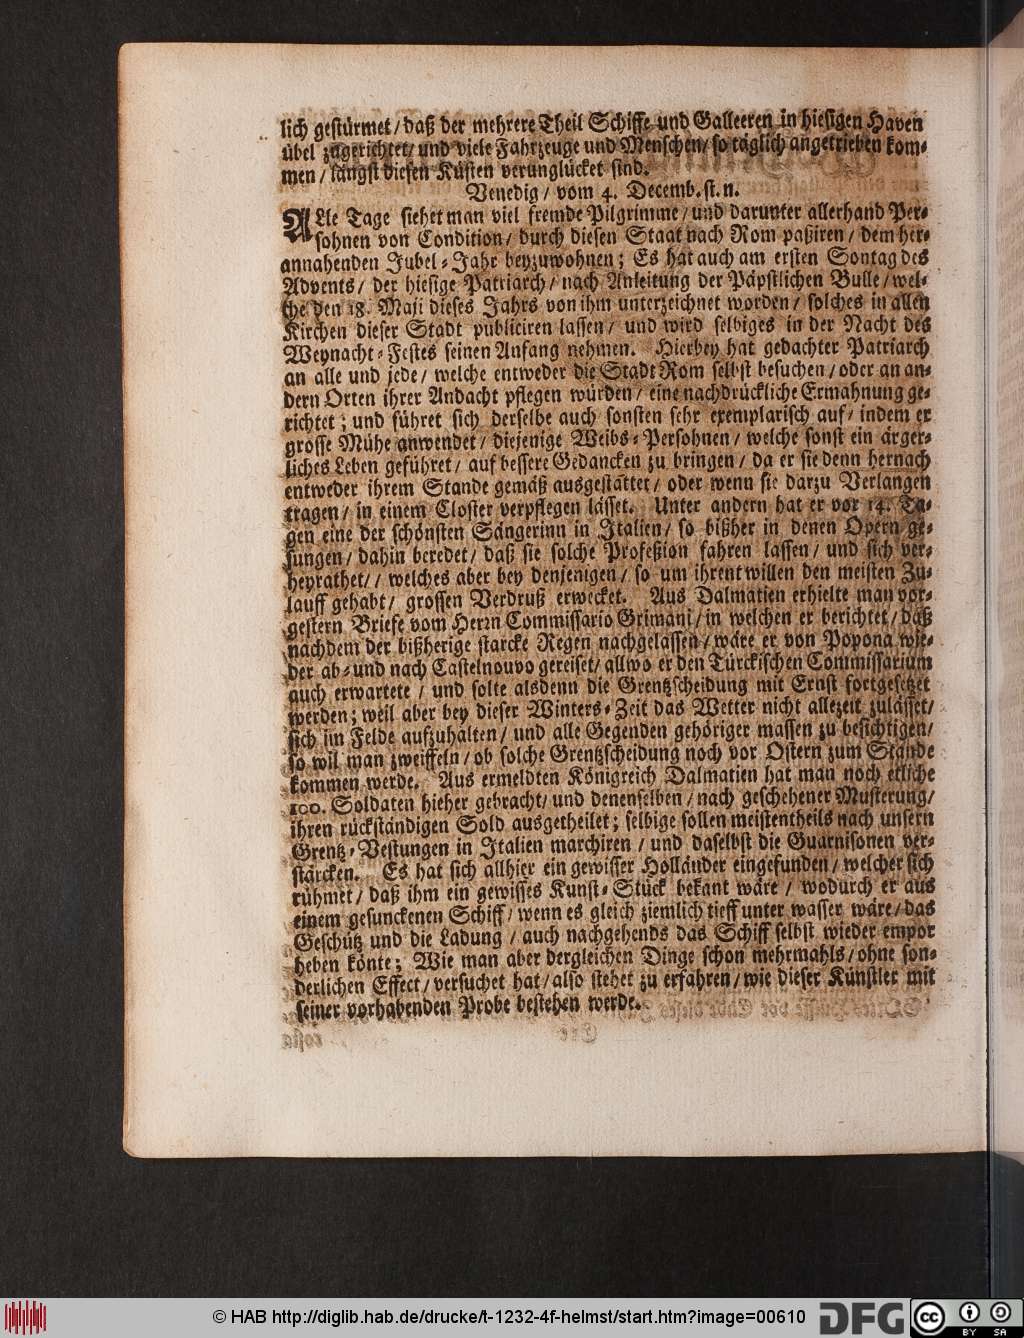 lich gestürmet / daß der mehrere Theil Schiffe und Galleeren in hiesigen Haven
übel zugerichtet / und viele Fahrzeuge und Menschen / so täglich angetrieben kom⸗
men / längst diesen Küsten verunglücket sind.
Venedig / vom 4. Decemb. st. n.
ALle Tage siehet man viel fremde Pilgrimme / und darunter allerhand Per⸗
sohnen von Condition / durch diesen Staat nach Rom paßiren / dem her⸗
annahenden Jubel⸗Jahr beyzuwohnen; Es hat auch am ersten Sontag des
Advents / der hiesige Patriarch / nach Anleitung der Päpstlichen Bulle / wel⸗
che den 18. Maji dieses Jahrs von ihm unterzeichnet worden / solches in allen
Kirchen dieser Stadt publiciren lassen / und wird selbiges in der Nacht des
Weynacht⸗Festes seinen Anfang nehmen. Hierbey hat gedachter Patriarch
an alle und jede / welche entweder die Stadt Rom selbst besuchen / oder an an⸗
dern Orten ihrer Andacht pflegen würden / eine nachdrückliche Ermahnung ge⸗
richtet; und führet sich derselbe auch sonsten sehr exemplarisch auf / indem er
grosse Mühe anwendet / diejenige Weibs⸗Persohnen / welche sonst ein ärger⸗
liches Leben geführet / auf bessere Gedancken zu bringen / da er sie denn hernach
entweder ihrem Stande gemäß ausgestattet / oder wenn sie darzu Verlangen
tragen / in einem Closter verpflegen lässet. Unter andern hat er vor 14. Ta⸗
gen eine der schönsten Sängerinn in Italien / so bißher in denen Opern ge⸗
sungen / dahin beredet / daß sie solche Profeßion fahren lassen / und sich ver⸗
heyrathet / / welches aber bey denjenigen / so um ihrent willen den meisten Zu⸗
lauff gehabt / grossen Verdruß erwecket. Aus Dalmatien erhielte man vor⸗
gestern Briefe vom Herrn Commissario Grimani / in welchen er berichtet / daß
nachdem der bißherige starcke Regen nachgelassen / wäre er von Popona wie⸗
der ab⸗ und nach Castelnouvo gereiset / allwo er den Türckischen Commissarium
auch erwartete / und solte alsdenn die Grentzscheidung mit Ernst fortgesetzet
werden; weil aber bey dieser Winters⸗Zeit das Wetter nicht allezeit zulässet /
sich im Felde aufzuhalten / und alle Gegenden gehöriger massen zu besichtigen /
so wil man zweiffeln / ob solche Grentzscheidung noch vor Ostern zum Stande
kommen werde. Aus ermeldten Königreich Dalmatien hat man noch etliche
100. Soldaten hieher gebracht / und denenselben / nach geschehener Musterung /
ihren rückständigen Sold ausgetheilet; selbige sollen meistentheils nach unsern
Grentz⸗Vestungen in Italien marchiren / und daselbst die Guarnisonen ver⸗
stärcken. Es hat sich allhier ein gewisser Holländer eingefunden / welcher sich
rühmet / daß ihm ein gewisses Kunst⸗Stück bekant wäre / wodurch er aus
einem gesunckenen Schiff / wenn es gleich ziemlich tieff unter wasser wäre / das
Geschütz und die Ladung / auch nachgehends das Schiff selbst wieder empor
heben könte; Wie man aber dergleichen Dinge schon mehrmahls / ohne son⸗
derlichen Effect / versuchet hat / also stehet zu erfahren / wie dieser Künstler mit
seiner vorhabenden Probe bestehen werde.
© HAB http://diglib.hab.de/drucke/t-1232-4f-helmst/start.htm?image=00610
DFG
cc
BY SA